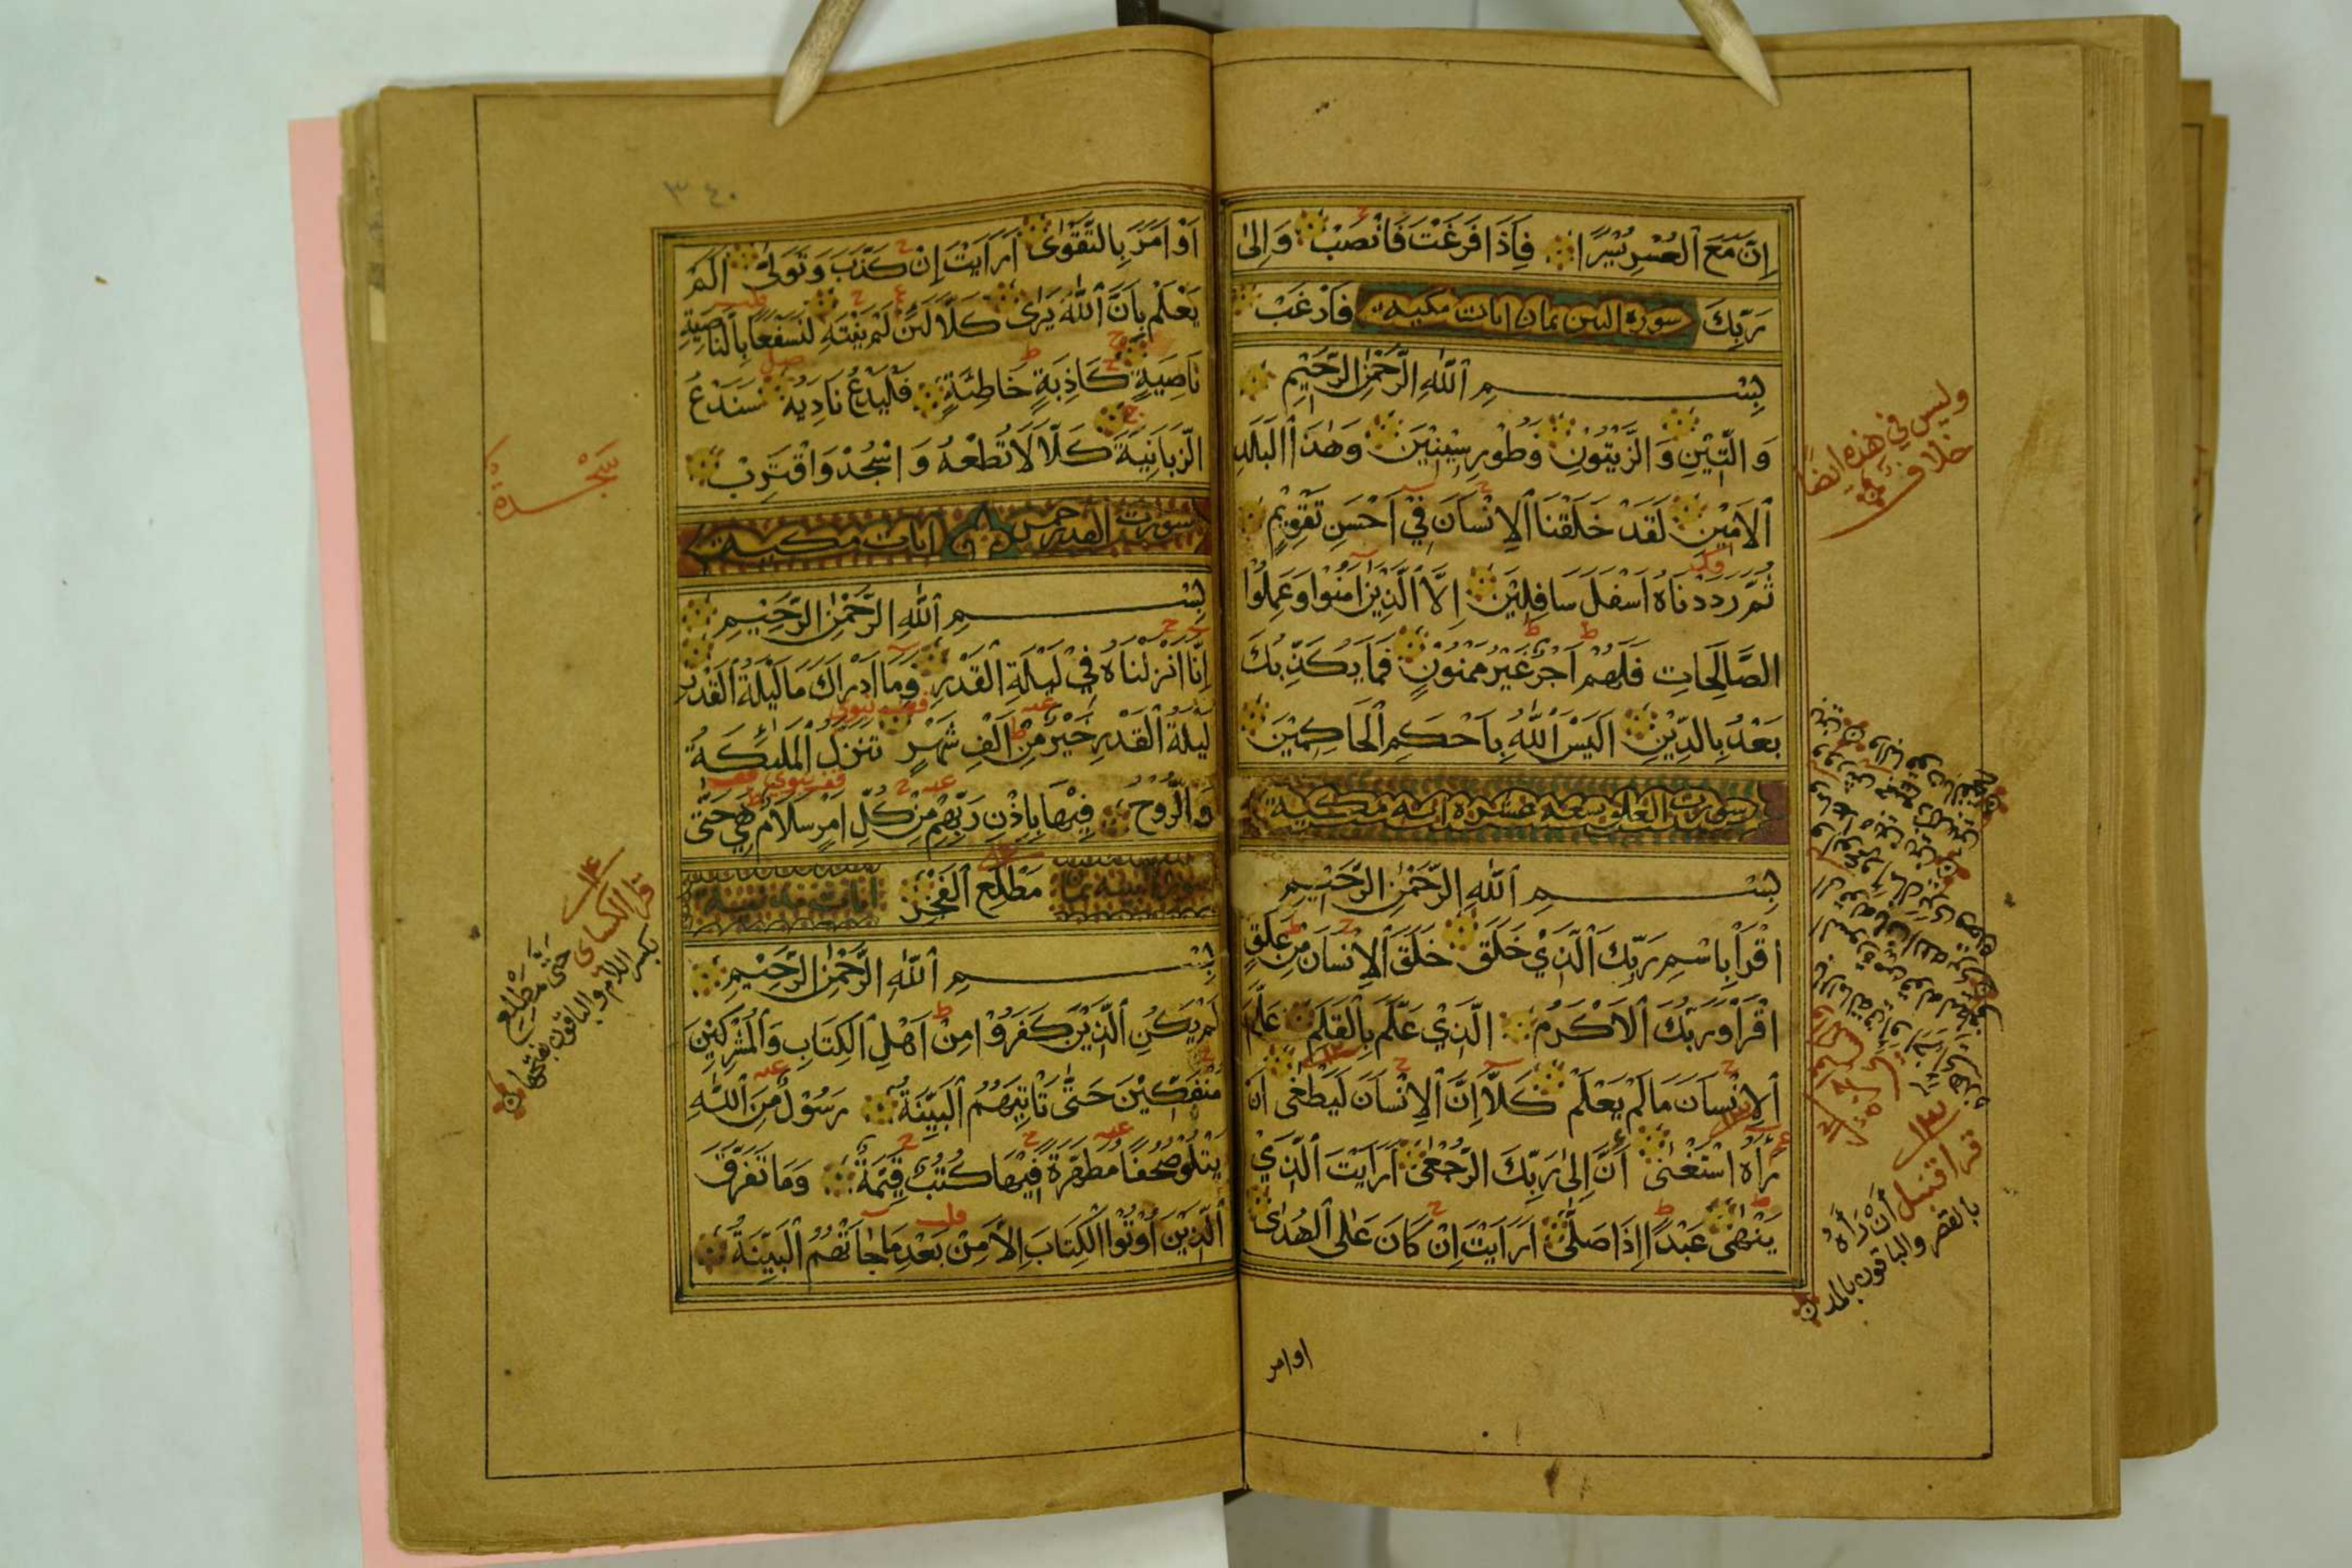 اِنَّ مَعَ الْعُسْرِ يُسْرًا فَاِذَا فَرَغْتَ فَانْصَبْ وَاِلٰى
رَبِّكَ سورة التين ثمان ايات مكية فَارْغَبْ
بِسْمِ اللّٰهِ الرَّحْمٰنِ الرَّحِيْمِ
وَالتِّيْنِ وَالزَّيْتُوْنِ وَطُوْرِ سِيْنِيْنَ وَهٰذَا الْبَلَدِ
الْاَمِيْنِ لَقَدْ خَلَقْنَا الْاِنْسَانَ فِيْ اَحْسَنِ تَقْوِيْمٍ
ثُمَّ رَدَدْنَاهُ اَسْفَلَ سَافِلِيْنَ اِلَّا الَّذِيْنَ اٰمَنُوْا وَعَمِلُوا
الصَّالِحَاتِ فَلَهُمْ اَجْرٌ غَيْرُ مَمْنُوْنٍ فَمَا يُكَذِّبُكَ
بَعْدُ بِالدِّيْنِ اَلَيْسَ اللّٰهُ بِاَحْكَمِ الْحَاكِمِيْنَ
سورت العلق تسعة عشرة اية مكية
بِسْمِ اللّٰهِ الرَّحْمٰنِ الرَّحِيْمِ
اِقْرَاْ بِاسْمِ رَبِّكَ الَّذِيْ خَلَقَ خَلَقَ الْاِنْسَانَ مِنْ عَلَقٍ
اِقْرَاْ وَرَبُّكَ الْاَكْرَمُ الَّذِيْ عَلَّمَ بِالْقَلَمِ عَلَّمَ
الْاِنْسَانَ مَا لَمْ يَعْلَمْ كَلَّا اِنَّ الْاِنْسَانَ لَيَطْغٰى اَنْ
رَاٰهُ اسْتَغْنٰى اِنَّ اِلٰى رَبِّكَ الرُّجْعٰى اَرَاَيْتَ الَّذِيْ
يَنْهٰى عَبْدًا اِذَا صَلّٰى اَرَاَيْتَ اِنْ كَانَ عَلَى الْهُدٰى
او امر
وليس في هذه ايضا
خلاف
قرا قنبل اَنْ رَأَهُ
بالقصر والباقون بالمد
٣٤٠
اَوْ اَمَرَ بِالتَّقْوٰى اَرَاَيْتَ اِنْ كَذَّبَ وَتَوَلّٰى اَلَمْ
يَعْلَمْ بِاَنَّ اللّٰهَ يَرٰى كَلَّا لَئِنْ لَمْ يَنْتَهِ لَنَسْفَعًا بِالنَّاصِيَةِ
نَاصِيَةٍ كَاذِبَةٍ خَاطِئَةٍ فَلْيَدْعُ نَادِيَهُ سَنَدْعُ
الزَّبَانِيَةَ كَلَّا لَا تُطِعْهُ وَاسْجُدْ وَاقْتَرِبْ
سورت القدر خمس ايات مكية
بِسْمِ اللّٰهِ الرَّحْمٰنِ الرَّحِيْمِ
اِنَّا اَنْزَلْنَاهُ فِيْ لَيْلَةِ الْقَدْرِ وَمَا اَدْرَاكَ مَا لَيْلَةُ الْقَدْرِ
لَيْلَةُ الْقَدْرِ خَيْرٌ مِنْ اَلْفِ شَهْرٍ تَنَزَّلُ الْمَلٰئِكَةُ
وَالرُّوْحُ فِيْهَا بِاِذْنِ رَبِّهِمْ مِنْ كُلِّ اَمْرٍ سَلَامٌ هِيَ حَتّٰى
سورة البينة ثمان مَطْلَعِ الْفَجْرِ ايات
بِسْمِ اللّٰهِ الرَّحْمٰنِ الرَّحِيْمِ
لَمْ يَكُنِ الَّذِيْنَ كَفَرُوْا مِنْ اَهْلِ الْكِتَابِ وَالْمُشْرِكِيْنَ
مُنْفَكِّيْنَ حَتّٰى تَاْتِيَهُمُ الْبَيِّنَةُ رَسُوْلٌ مِنَ اللّٰهِ
يَتْلُوْ صُحُفًا مُطَهَّرَةً فِيْهَا كُتُبٌ قَيِّمَةٌ وَمَا تَفَرَّقَ
الَّذِيْنَ اُوْتُوا الْكِتَابَ اِلَّا مِنْ بَعْدِ مَا جَاتْهُمُ الْبَيِّنَةُ
سَجْدة
قرا الكساى
حَتّٰى مَطْلِعِ
بكسر اللام والباقون بفتحها